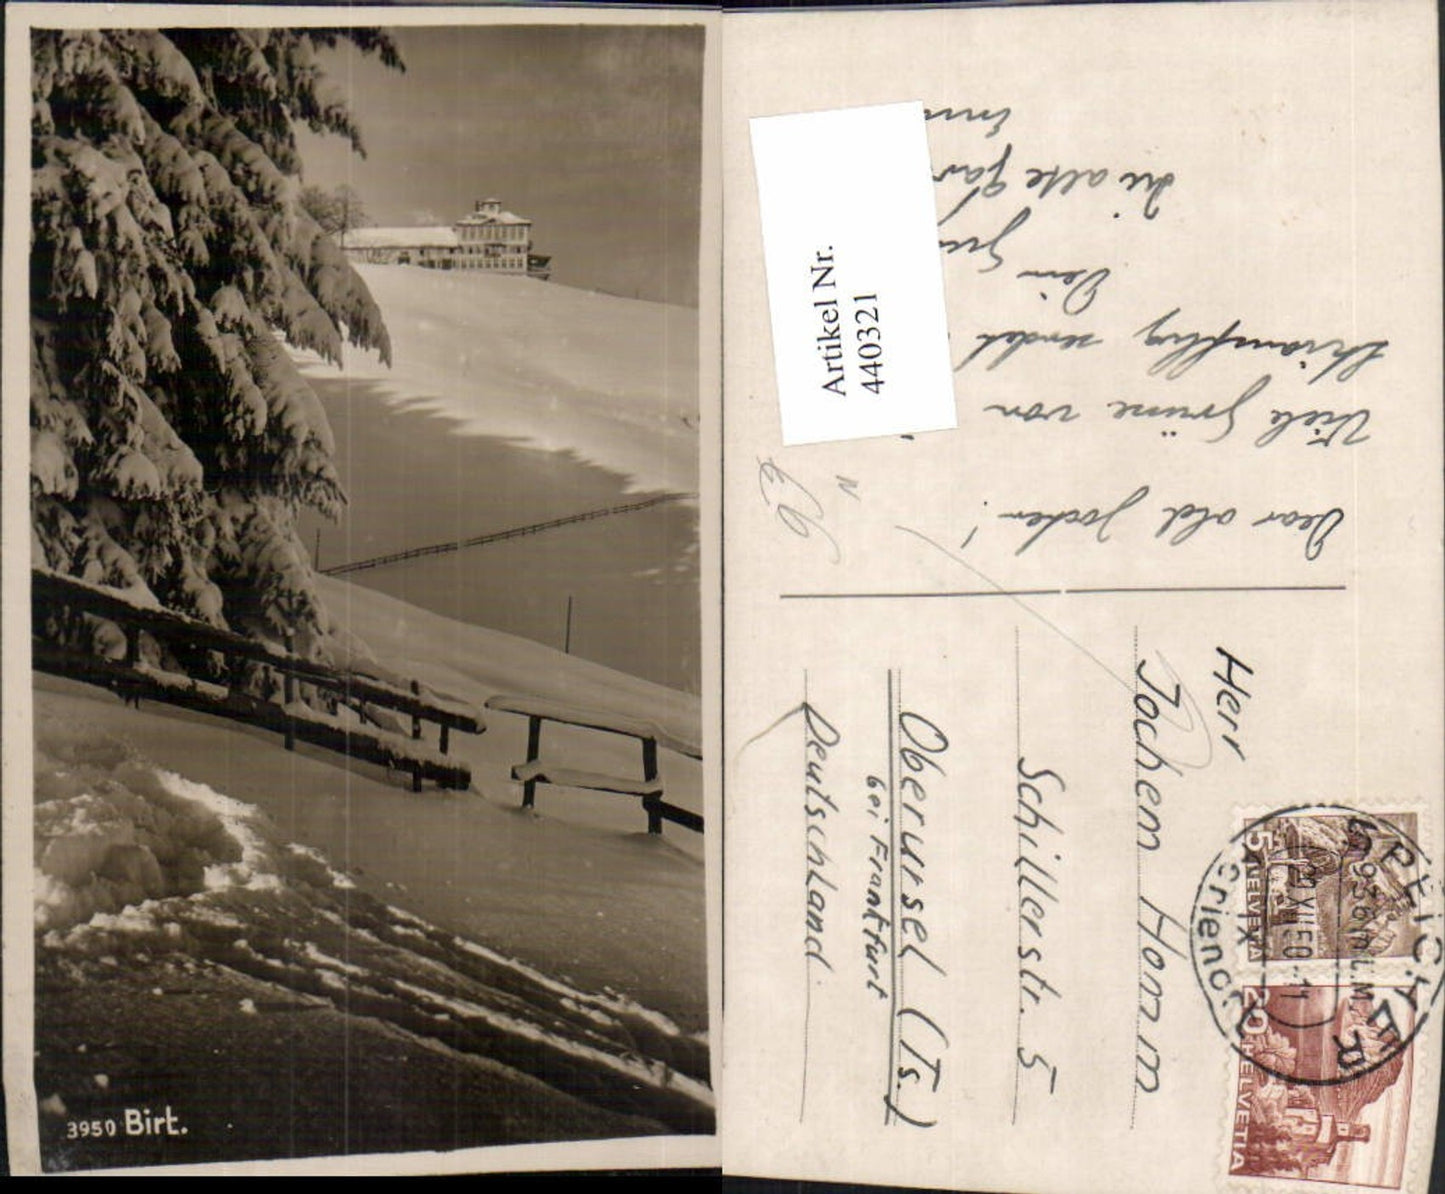 3950 Birt.
Artikel Nr.
440321
Dear old Jochen!
Viele Grüsse von
sendet
Dein
die alte
Herr
Jochem Homm
Schillerstr. 5
Oberursel (Ts.)
bei Frankfurt
Deutschland.
SPEICHER
5
HELVETIA
20
HELVETIA